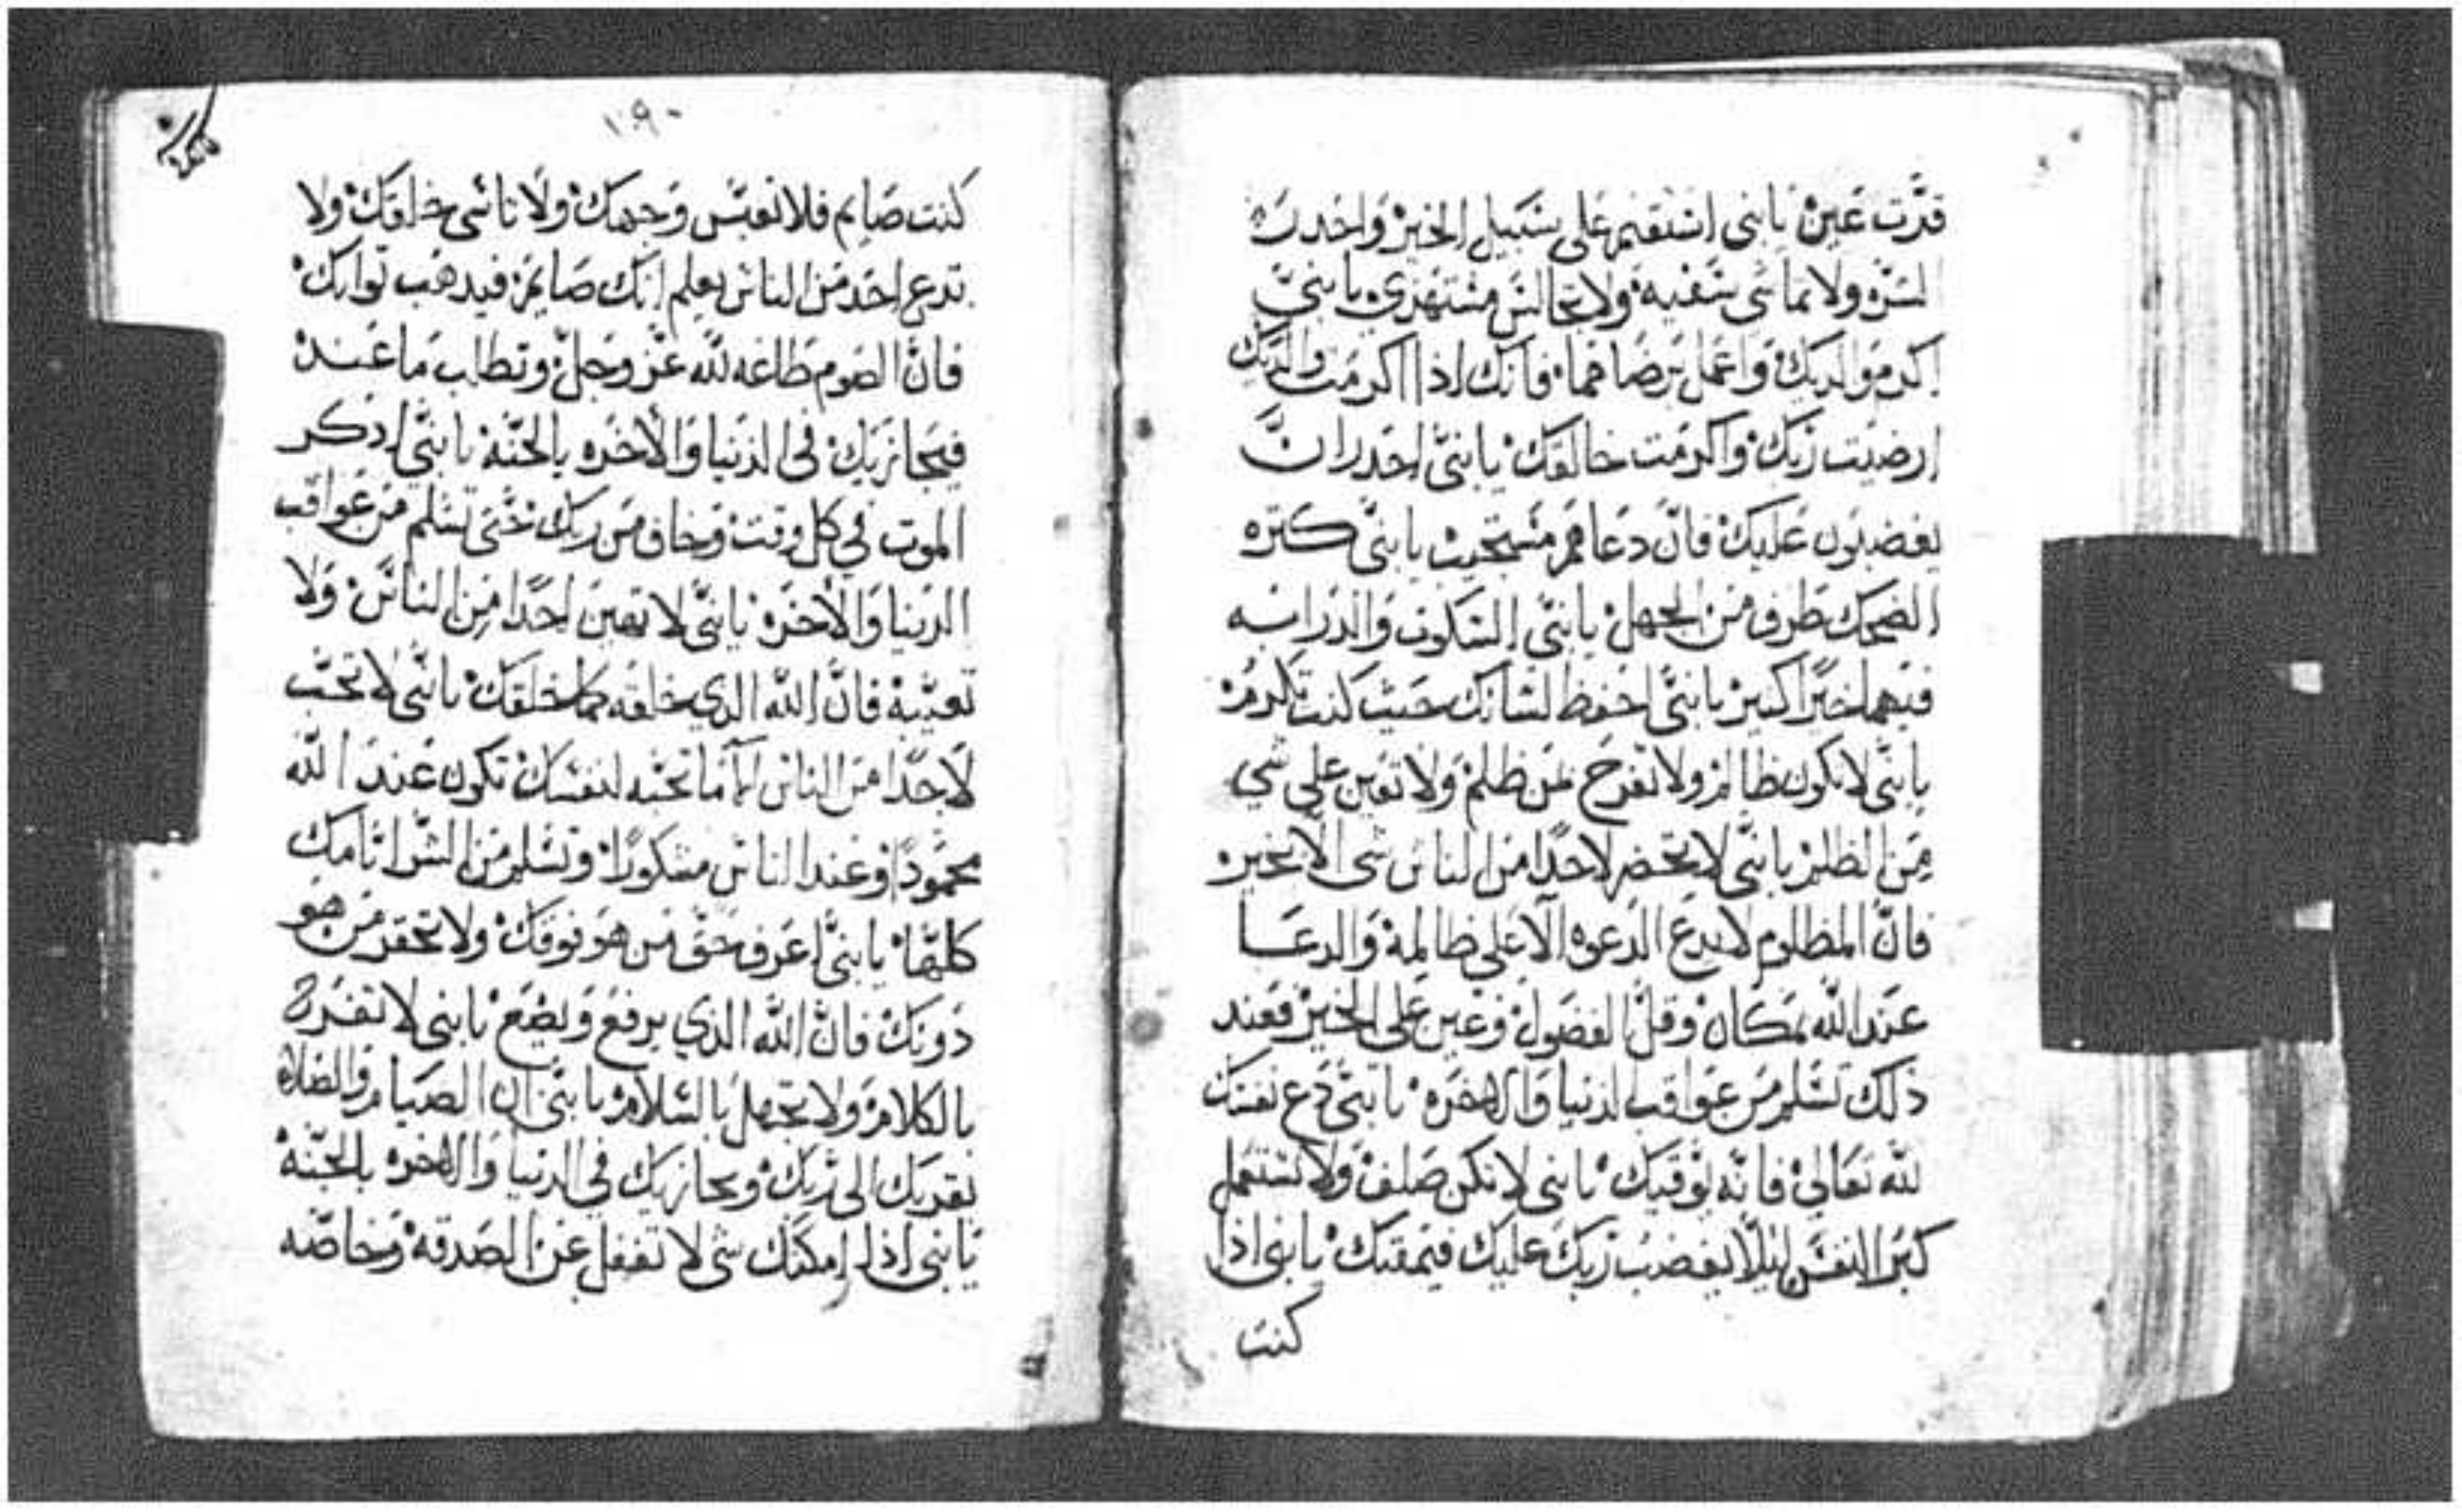 قرّت عين يا بني استقيم على سبيل الخير واحدر
الشر ولا تماشي سفيه ولا تجالس مستهزي يا بنيّ
اكرم والديك واعمل برضاهما فانك اذا اكرمت والديك
ارضيت ربك واكرمت خالقك يا بنيّ احدر ان
يغضبون عليك فانّ دعاهم مستجيب يا بنيّ كتره
الضحك طرف من الجهل يا بنيّ السكوت والدراسه
فيهما خيرًا كبير يا بنيّ احفظ لسانك حيث كنت تكرم
يا بنيّ لا تكون ظالم ولا تفرح لمن ظلم ولا تعين على شي
من الظلم يا بنيّ لا تحضر لاحدًا من الناس شي الا بخير
فانّ المظلوم لا يدع الدعوه الّا على ظالمه والدعا
عند الله بمكان وقلّ الفضول وعين على الخير فعند
ذلك تسلم من عواقب الدنيا والاخره يا بنيّ دع نفسك
لله تعالى فانّه يوقيك يا بني لا تكن صلف ولا تستعمل
كبر النفس ليلّا يغضب ربك عليك فيمقتك يا بني اذا
كنت
١٩٠
كنت صايم فلا تعبّس وجهك ولا تاسي خلقك ولا
تدع احد من الناس يعلم انك صايم فيدهب توابك
فانّ الصوم طاعه لله عزّ وجلّ وتطلب ما عنده
فيجازيك في الدنيا والاخره بالجنّة يا بنيّ ادكر
الموت في كل وقت وخاف من ربك حتى تسلم من عواقب
الدنيا والاخره يا بنيّ لا تعين احدًا من الناس ولا
تعيّبه فانّ الله الدي خلقه كما خلقك يا بنيّ لا تحبّ
لاحدًا من الناس الّا ما تحبّه لنفسك تكون عند الله
محمودًا وعند الناس مشكورًا وتسلم من الشر ايامك
كلها يا بنيّ اعرف حقّ من هو فوقك ولا تحقر من هو
دونك فانّ الله الدي يرفع ويضع يا بني لا
بالكلام ولا تجهل بالسلام يا بنيّ ان الصيام والصلاه
تقربك الى ربك وتجازيك في الدنيا والاخره بالجنّه
يا بني اذا امكنك شي لا تغفل عن الصدقه وخاصّه